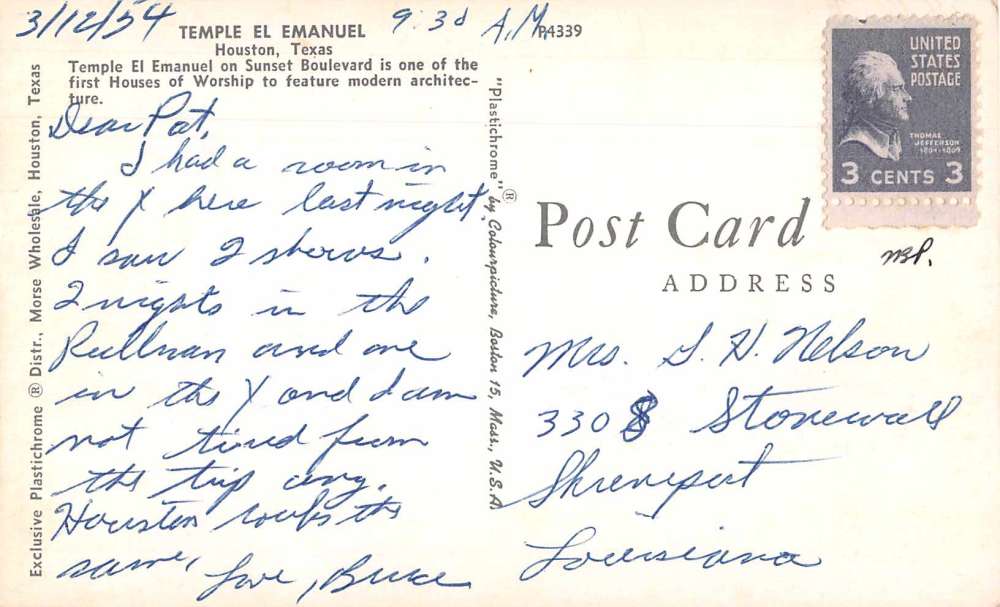 3/12/54 9:30 A.M.
TEMPLE EL EMANUEL
P4339
Houston, Texas
Temple El Emanuel on Sunset Boulevard is one of the
first Houses of Worship to feature modern architec-
ture.
Dear Pat,
I had a room in
the Y here last night
I saw 2 shows.
2 nights in the
Pullman and one
in the Y and I am
not tired from
the trip any.
Houston looks the
same,
Love, Bruce
Exclusive Plastichrome ® Distr., Morse Wholesale, Houston, Texas
"Plastichrome"® by Colourpicture, Boston 15, Mass., U.S.A
UNITED
STATES
POSTAGE
THOMAS
JEFFERSON
1801-1809
3 CENTS 3
Post Card
ADDRESS
Mrs. S. H. Nelson
3308 Stonewall
Shreveport
Louisiana